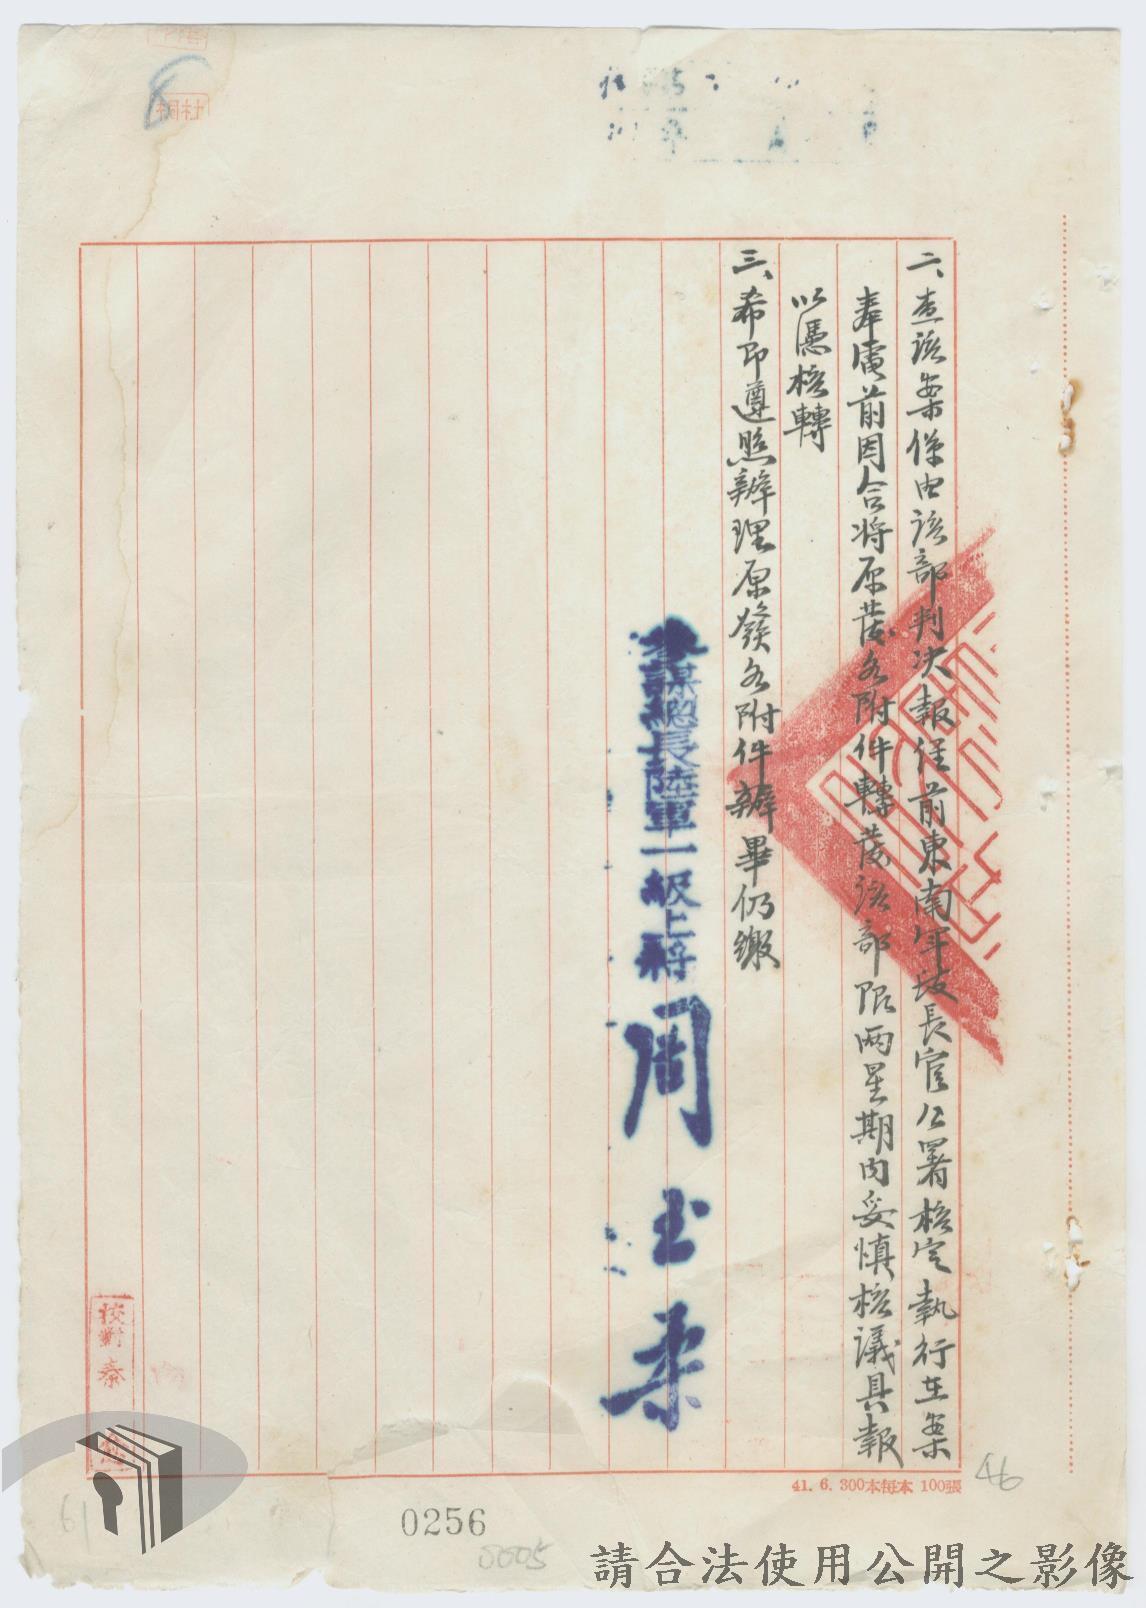 二、查該案係由該部判決報經前東南軍政長官公署核定執行在案
奉電前因合將原發各附件轉發該部限兩星期內妥慎核議具報
以憑核轉
三、希即遵照辦理原發各附件辦畢仍繳
參謀總長陸軍一級上將周至柔
校對秦
41. 6. 300本每本 100張
46
61
0256
0005
8
請合法使用公開之影像